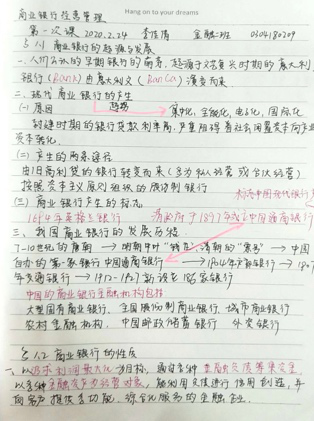 Hang on to your dreams
商业银行经营管理
第一次课 2020.2.24 李 金融二班 0304180209
§1.1 商业银行的起源与发展
一、人们公认的早期银行的萌芽,起源于文艺复兴时期的意大利,
银行(Bank)由意大利文(Banca)演变而来
二、现代商业银行的产生
(一)原因 趋势 集中化、全能化、电子化、国际化
封建时期的银行贷款利率高,严重阻碍着社会闲置资本向产业
资本转化
(二)产生的两条途径
由旧高利贷的银行转变而来(多为私人经营或合伙经营)
按照资本主义原则组织的股份制银行
(三)商业银行产生的标志 标志中国现代银行
1694年英格兰银行 1897年成立中国通商银行
三、我国商业银行的发展历程
7-10世纪的唐朝→明朝中叶"钱庄",清朝的"票号"→中国
自办的第一家银行中国通商银行→1904年户部银行→1907
年交通银行→1912-1927新设立186家银行
中国的商业银行金融机构包括
大型国有商业银行、全国股份制商业银行、城市商业银行
农村金融机构、中国邮政储蓄银行、外资银行
§1.2 商业银行的性质
一、以追求利润最大化为目标,通过多种金融负债筹集资金,
以多种金融资产为经营对象,能利用负债进行信用创造,并
向客户提供多功能、综合化服务的金融企业.